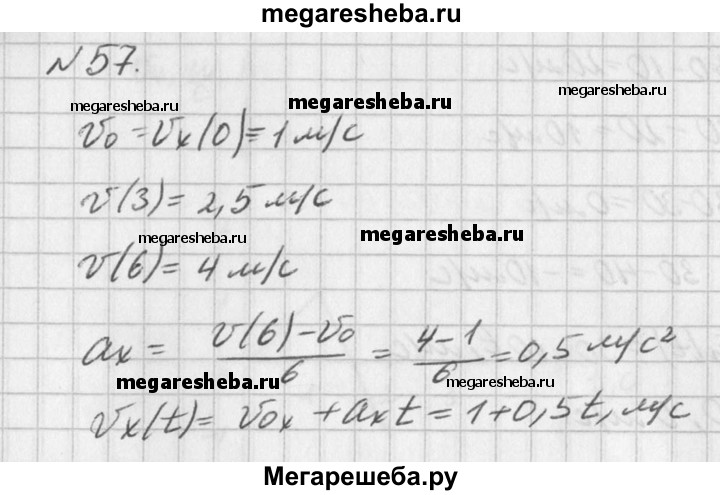 megaresheba.ru
№ 57.
megaresheba.ru megaresheba.ru
v₀ = vₓ(0) = 1 м/с
v(3) = 2,5 м/с
megaresheba.ru megaresheba.ru
v(6) = 4 м/с
aₓ = (v(6) – v₀)/6 = (4 – 1)/6 = 0,5 м/с²
megaresheba.ru megaresheba.ru
vₓ(t) = v₀ₓ + aₓt = 1 + 0,5t, м/с
Мегарешеба.ру